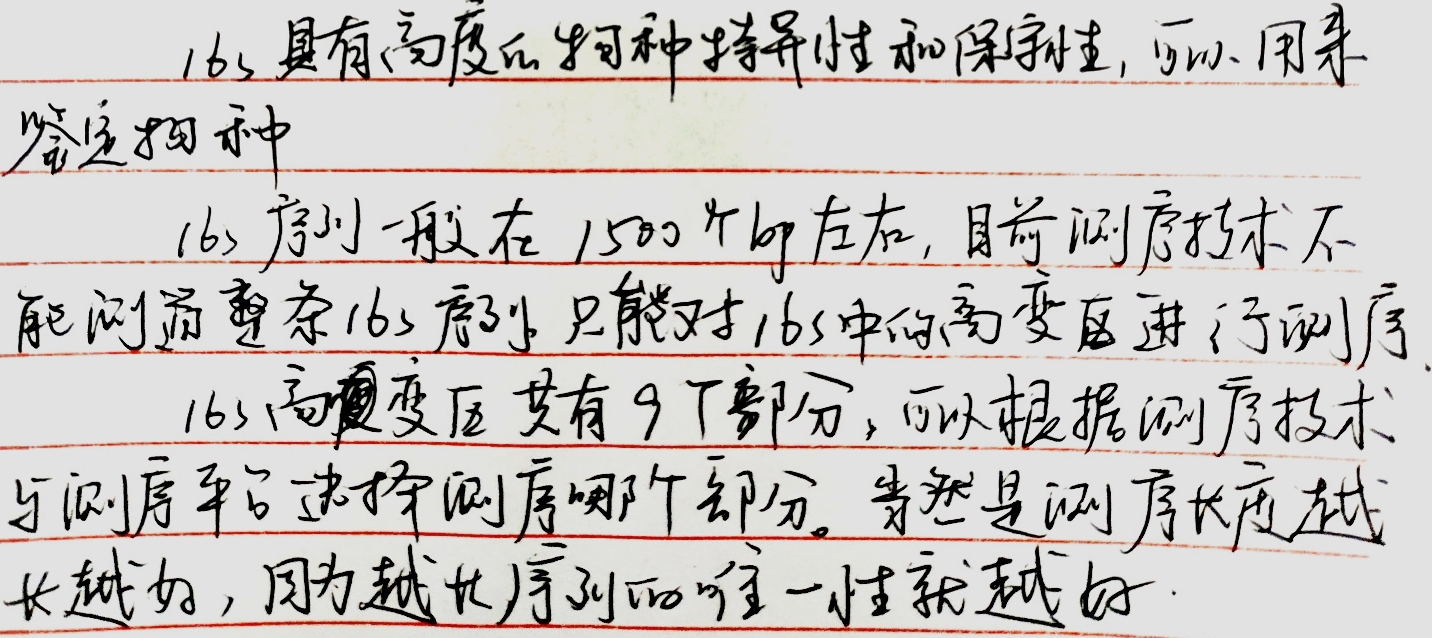 16s 具有高度的物种特异性和保守性, 可以用来
鉴定物种
16s 序列一般在 1500个bp左右, 目前测序技术不
能测通整条16s序列, 只能对16s中的高变区进行测序.
16s高变区共有9个部分, 可以根据测序技术
与测序平台选择测序哪个部分。当然是测序长度越
长越好, 因为越长序列的唯一性就越好.